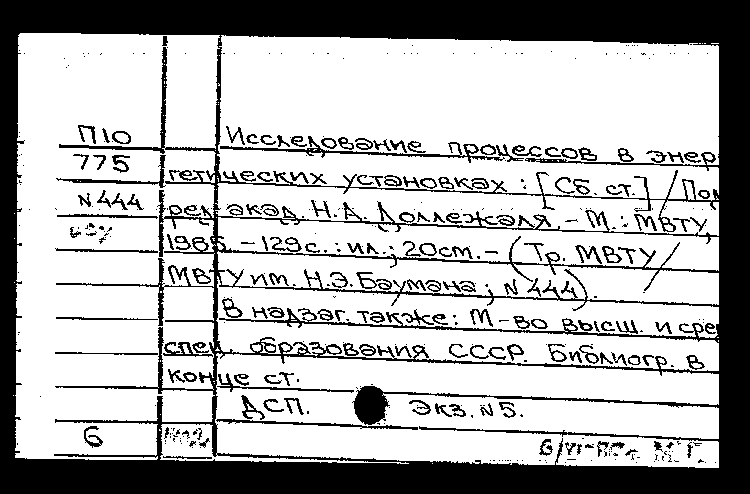 П10 Исследование процессов в энер
775 гетических установках : [Сб. ст.] / Под
N444 ред. акад. Н.А. Доллежаля. – М. : МВТУ,
1985. – 129с. : ил.; 20см. – (Тр. МВТУ /
МВТУ им. Н.Э. Баумана ; N444).
В надзаг. также: М-во высш. и сред
спец. образования СССР. Библиогр. в
конце ст.
ДСП. Экз. N5.
6 М.Г.